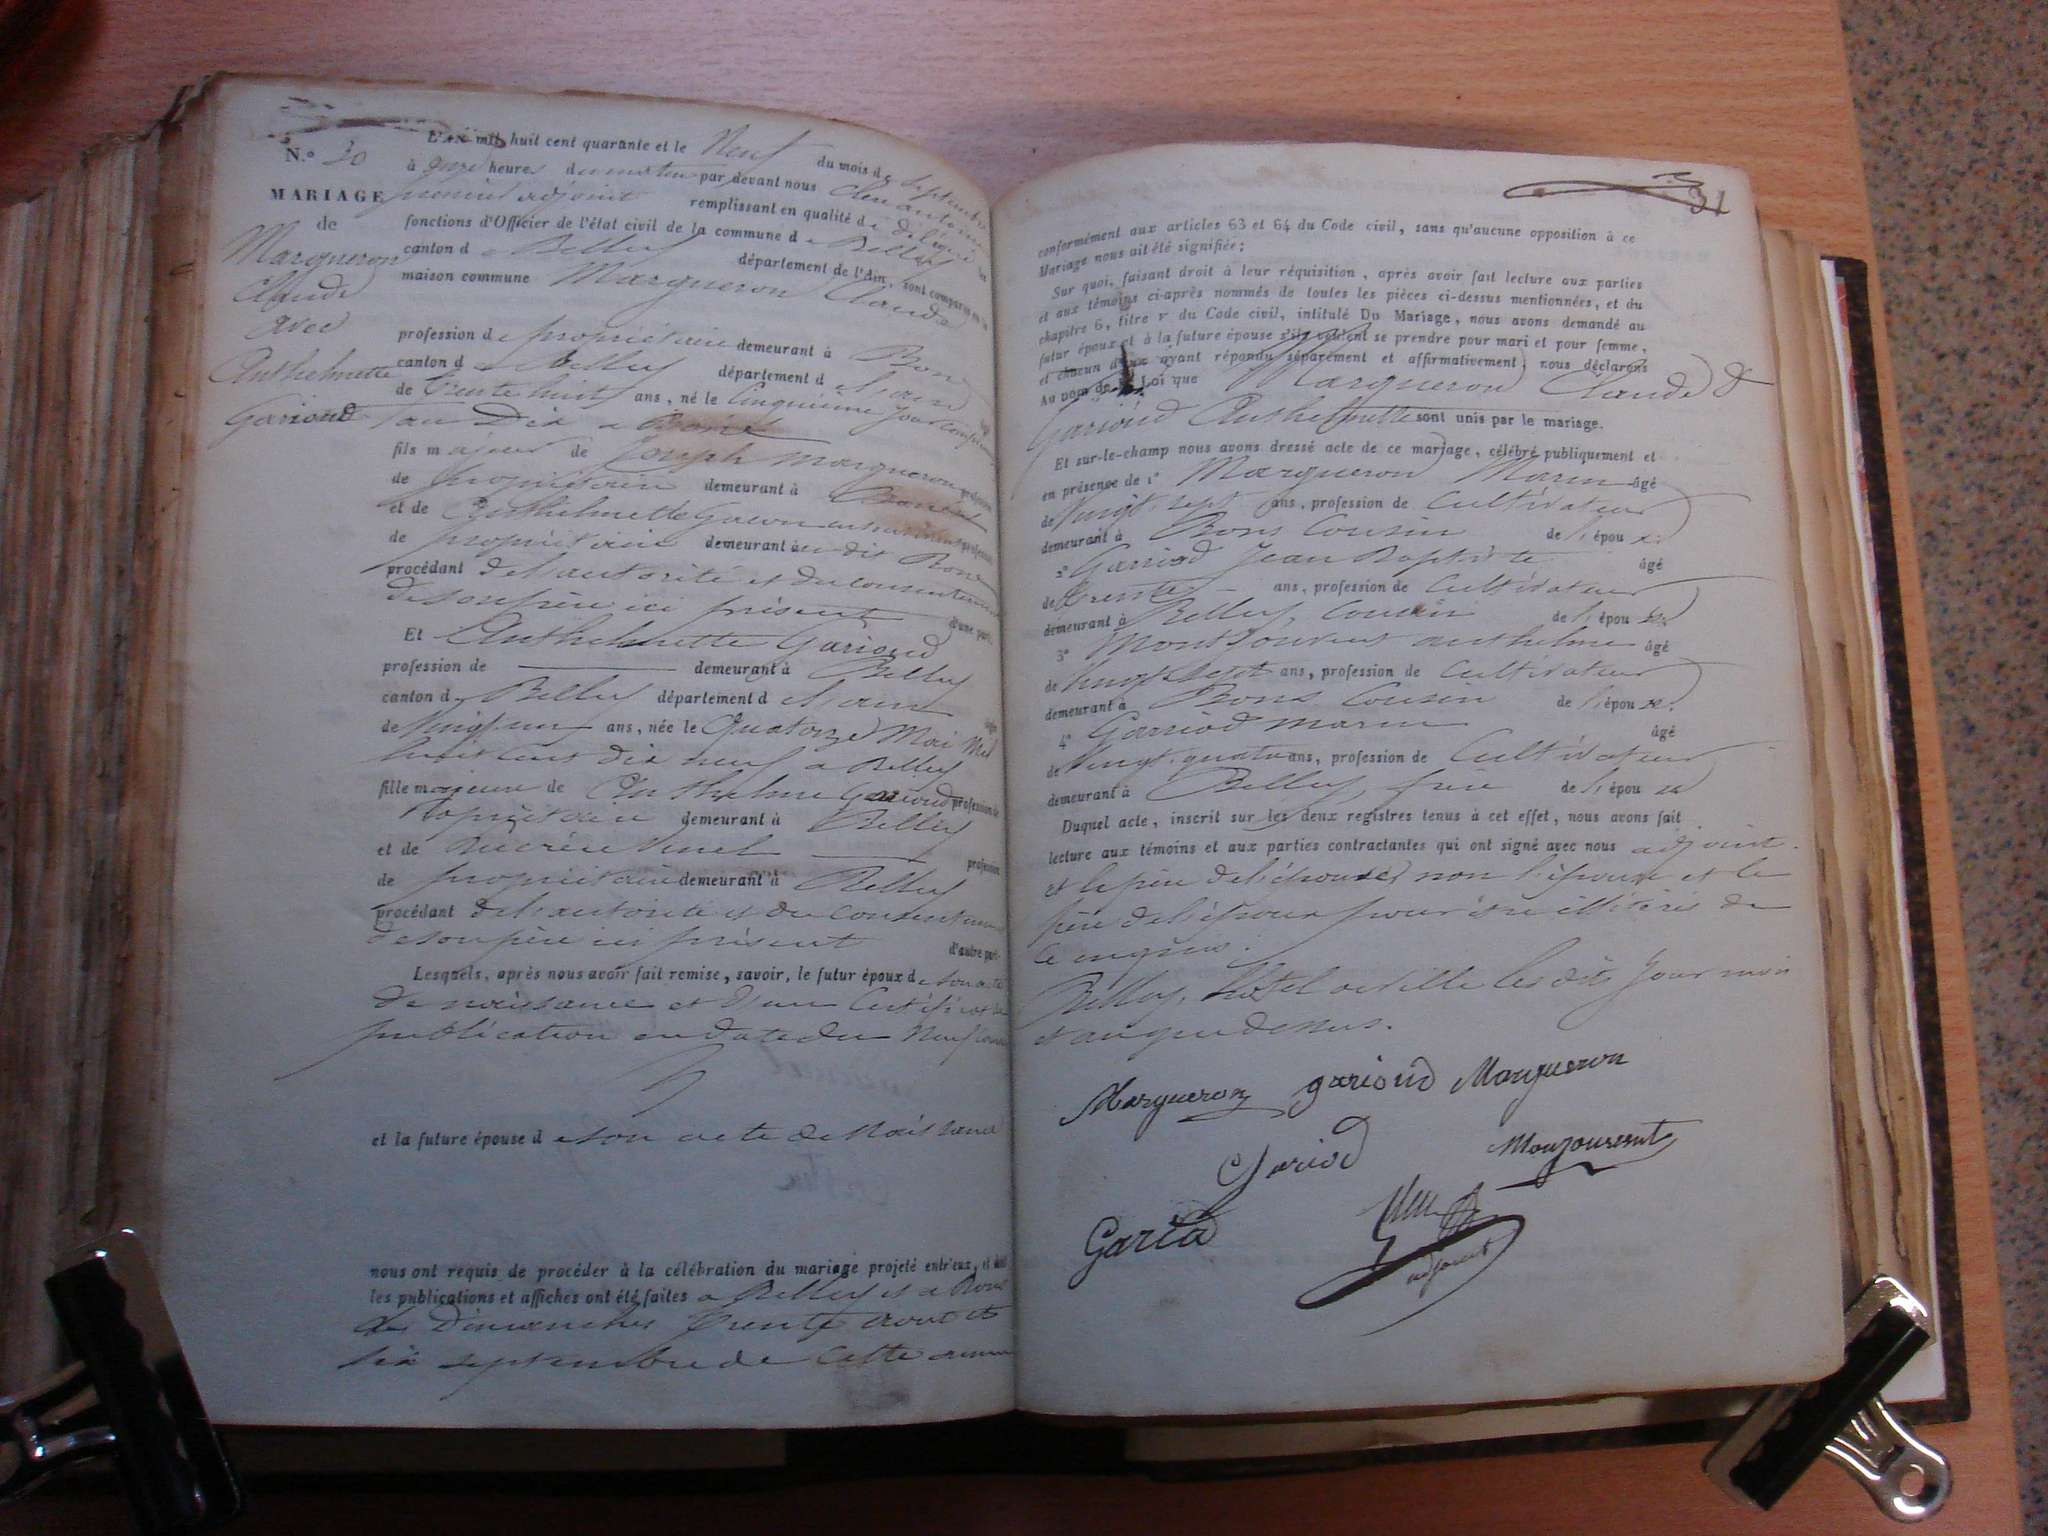 N.° 30
MARIAGE
de
Margueron
Claude
avec
Anthelmette
Garioud
L'AN mil huit cent quarante et le Neuf du mois de Septembre
à heures du matin par devant nous
premier adjoint remplissant en qualité de délégué les
fonctions d'Officier de l'état civil de la commune de Belley
canton de Belley département de l'Ain, sont comparus en la
maison commune Margueron Claude
profession de propriétaire demeurant à Bons
canton de Belley département de l'ain
de trente huit ans, né le Cinquième jour complémentaire
l'an Dix a
fils majeur de Joseph Margueron profession
de propriétaire demeurant à
et de Anthelmette profession
de propriétaire demeurant au dit Bons
procédant de l'autorité et du consentement
de son père ici présent d'une part.
Et Anthelmette Garioud
profession de demeurant à Belley
canton de Belley département de l'ain
de Vingt un ans, née le Quatorze Mai Mil
huit Cent dix neuf a Belley
fille majeure de Anthelme Garioud profession de
Propriétaire demeurant à Belley
et de profession
de propriétaire demeurant à Belley
procédant de l'autorité et du consentement
de son père ici présent d'autre part.
Lesquels, après nous avoir fait remise, savoir, le futur époux de son acte
de naissance et d'un Certificat de
publication en date du Neuf
et la future épouse de son acte de Naissance
nous ont requis de procéder à la célébration du mariage projeté entr'eux, et dont
les publications et affiches ont été faites a Belley et a Bons
les Dimanches trente aout et
six septembre de cette année
31
conformément aux articles 63 et 64 du Code civil, sans qu'aucune opposition à ce
Mariage nous ait été signifiée;
Sur quoi, faisant droit à leur réquisition, après avoir fait lecture aux parties
et aux témoins ci-après nommés de toutes les pièces ci-dessus mentionnées, et du
chapitre 6, titre v du Code civil, intitulé Du Mariage, nous avons demandé au
futur époux et à la future épouse s'ils veulent se prendre pour mari et pour femme,
et chacun d'eux ayant répondu séparément et affirmativement, nous déclarons
Au nom de la Loi que Margueron Claude &
Garioud Anthelmette sont unis par le mariage.
Et sur-le-champ nous avons dressé acte de ce mariage, célébré publiquement et
en présence de 1° Margueron Marin âgé
de Vingt sept ans, profession de Cultivateur
demeurant à Bons Cousin de l'époux
2° Garriod Jean Baptiste âgé
de trente ans, profession de Cultivateur
demeurant à Belley, Cousin de l'épouse
3° Montjouvent anthelme âgé
de Vingt Sept ans, profession de Cultivateur
demeurant à Bons Cousin de l'époux
4° Garriod Marin âgé
de Vingt quatre ans, profession de Cultivateur
demeurant à Belley, frère de l'épouse
Duquel acte, inscrit sur les deux registres tenus à cet effet, nous avons fait
lecture aux témoins et aux parties contractantes qui ont signé avec nous adjoint
et le père de l'épouse, non l'épouse et le
père de l'époux pour être illitérés de
ce enquis.
Belley, hôtel de ville les dits jour mois
et an que dessus.
Margueron garioud Margueron
Gariod Monjouvent
Gariod
adjoint